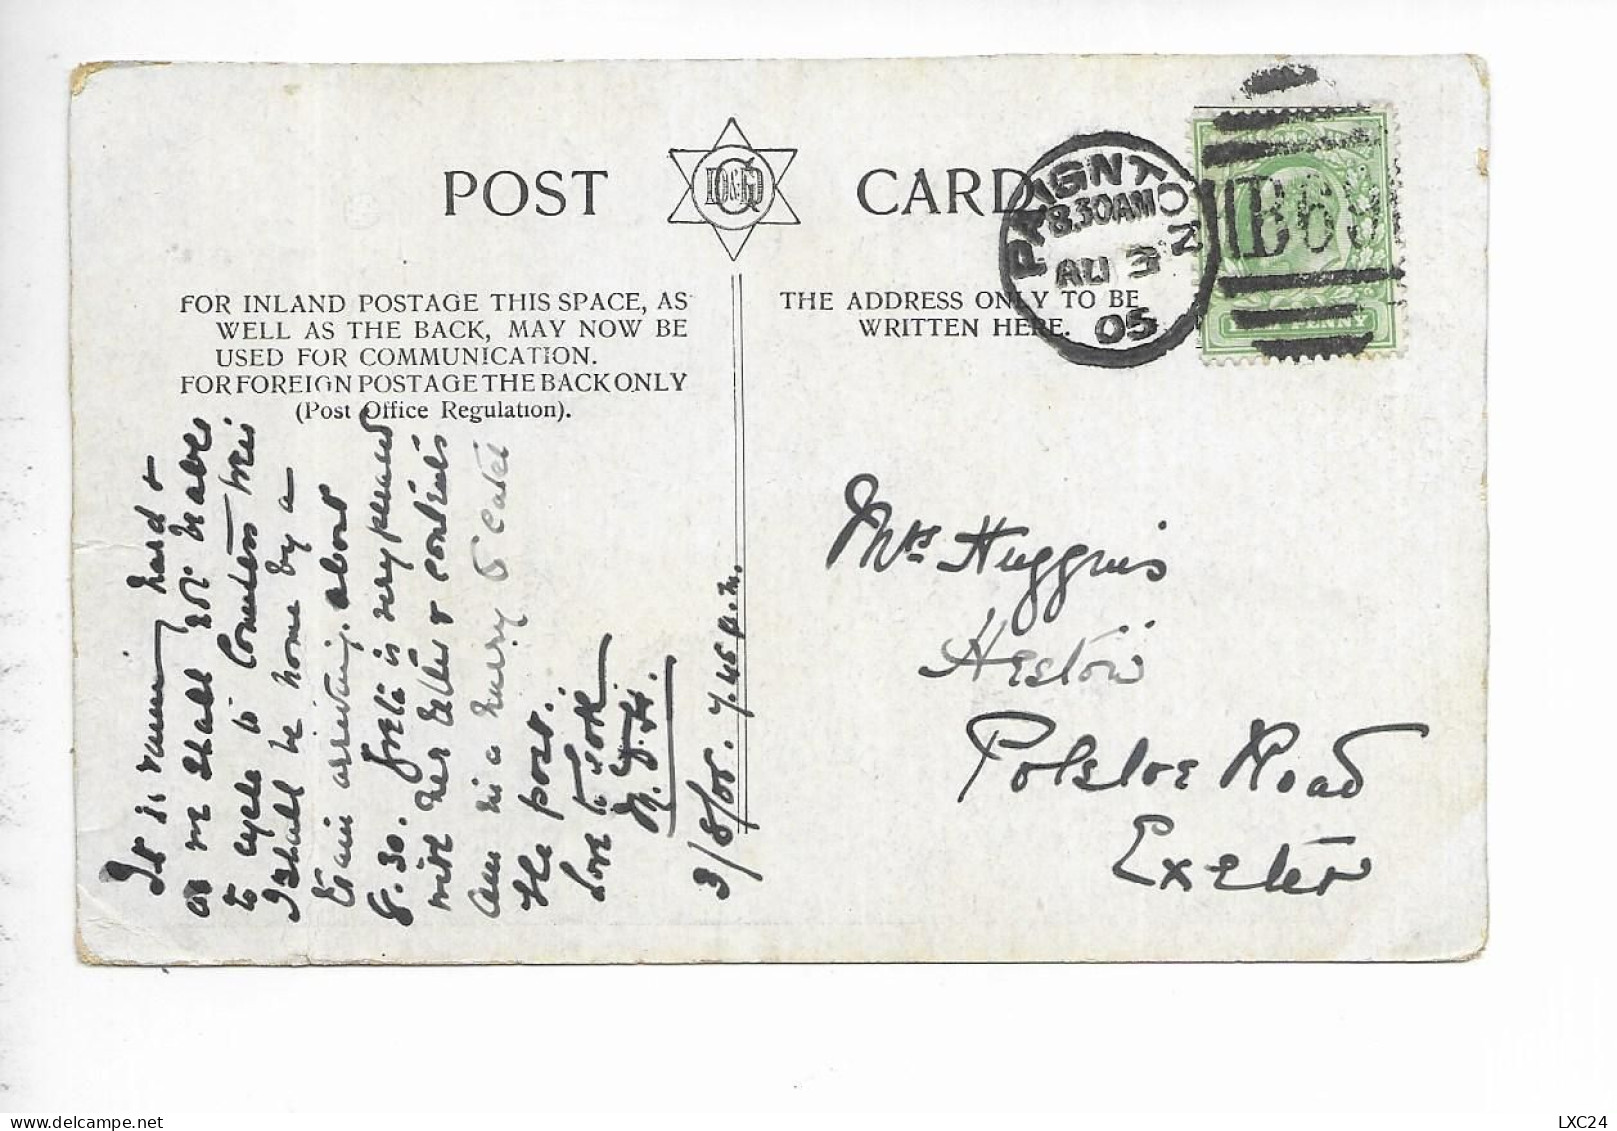 POST CARD
FOR INLAND POSTAGE THIS SPACE, AS
WELL AS THE BACK, MAY NOW BE
USED FOR COMMUNICATION.
FOR FOREIGN POSTAGE THE BACK ONLY
(Post Office Regulation).
THE ADDRESS ONLY TO BE
WRITTEN HERE.
PAIGNTON
8.30AM
AU 3
05
B69
HALF PENNY
It is raining hard &
as we shall not be able
to cycle to Countess Weir
I shall be home by a
train arriving about
8.30. Greta is very pleased
with her letter & contents
Am in a hurry to catch
the post.
Love to both
M.G.H.
3/8/05. 7.45 p.m.
Mrs Huggins
Polsloe Road
Exeter
LXC24